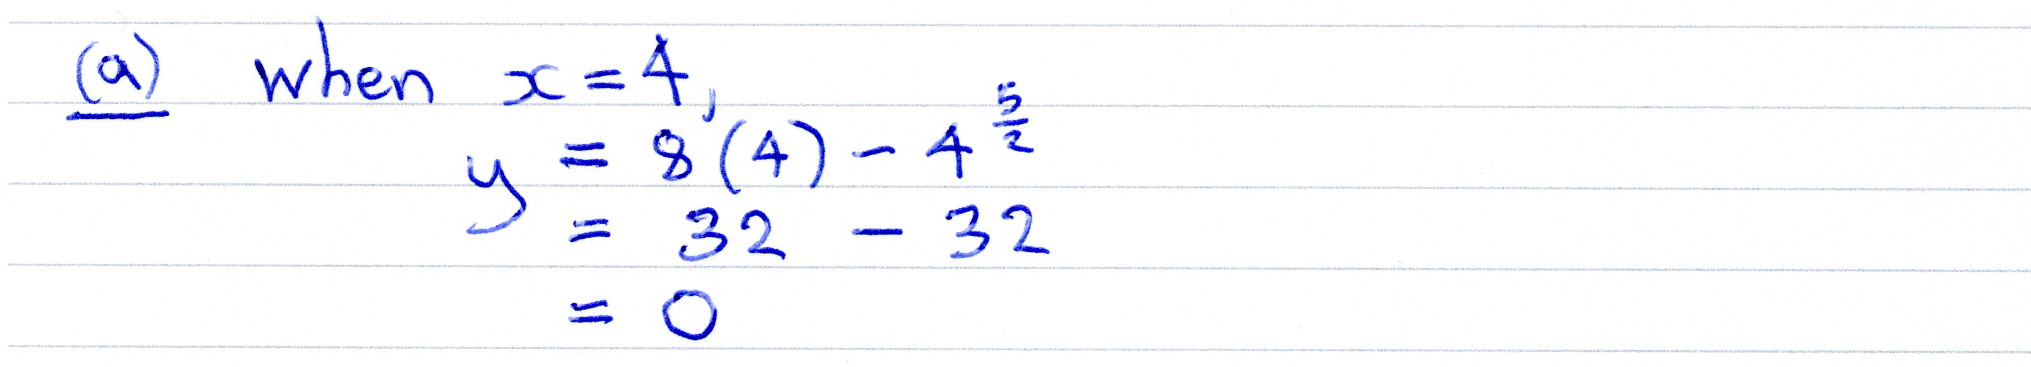 (a) when x = 4,
y = 8(4) - 4^(5/2)
= 32 - 32
= 0